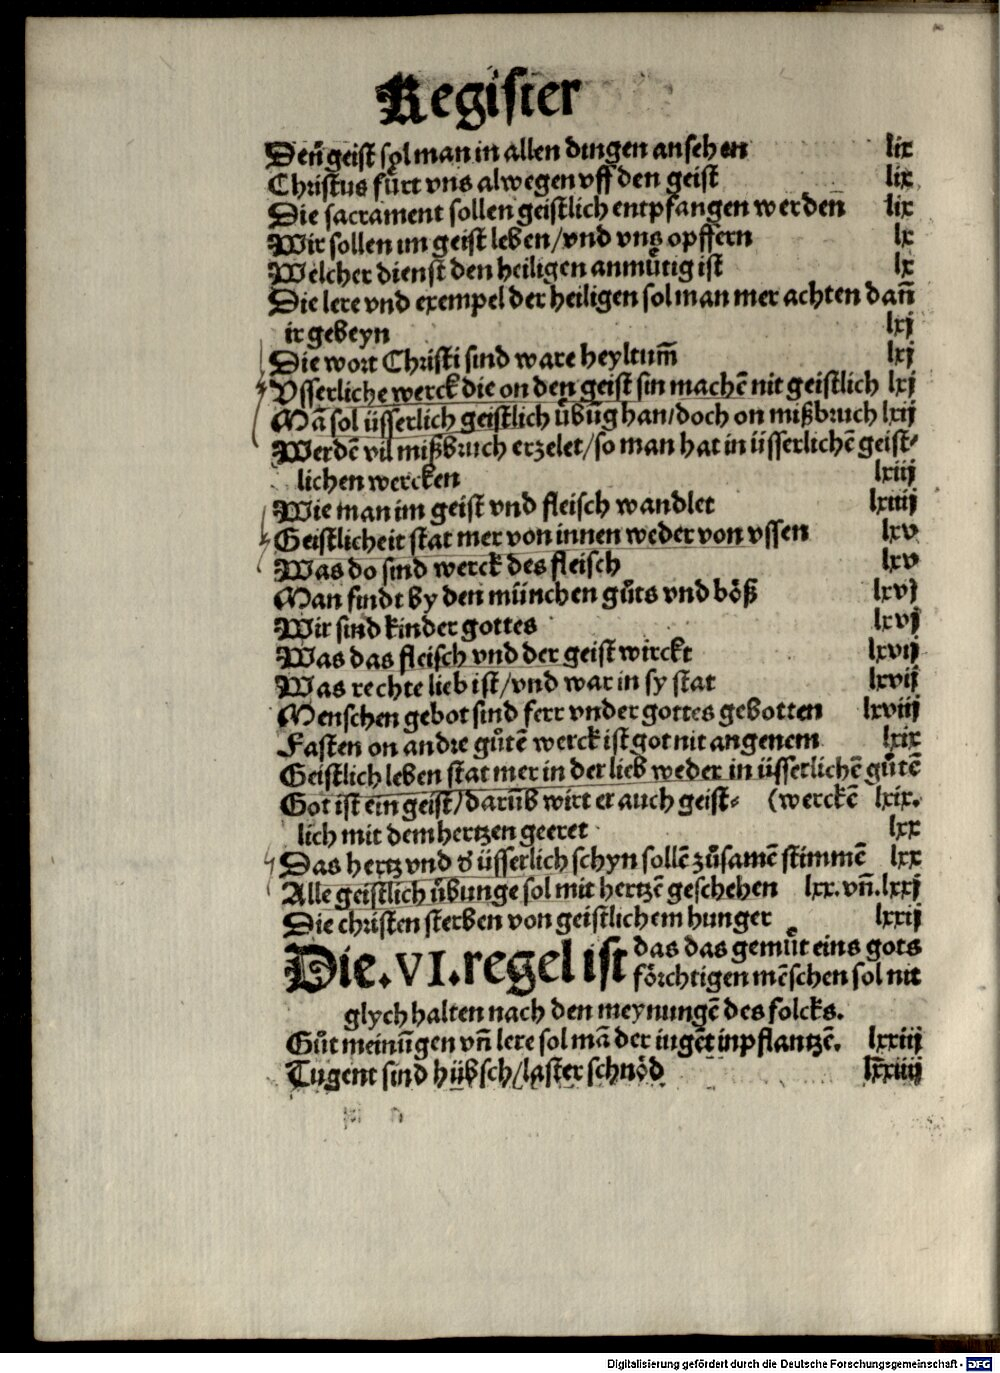 Register
Deñ geist sol man in allen dingen ansehen lix
Christus fürt vns alwegen vff den geist lix
Die sacrament sollen geistlich entpfangen werden lix
Wir sollen im geist leben/vnd vns opffern lx
Welcher dienst den heiligen anmůtig ist lx
Die lere vnd exempel der heiligen sol man mer achten dañ
ir gebeyn lxj
Die wort Christi sind ware heyltum̃ lxj
Vsserliche werck die on den geist sin machē nit geistlich lxj
Mā sol üsserlich geistlich übũg han/doch on mißbruch lxij
Werdē vil mißbruch erzelet/so man hat in üsserlichē geist⸗
lichen wercken lxiij
Wie man im geist vnd fleisch wandlet lxiiij
Geistlicheit stat mer von innen weder von vssen lxv
Was do sind werck des fleisch lxv
Man findt by den münchen gůts vnd böß lxvj
Wir sind kinder gottes lxvj
Was das fleisch vnd der geist wirckt lxvij
Was rechte lieb ist/vnd war in sy stat lxvij
Menschen gebot sind ferr vnder gottes gebotten lxviij
Fasten on andre gůtē werck ist got nit angenem lxix
Geistlich leben stat mer in der lieb weder in üsserlichē gůtē
Got ist ein geist/darũb wirt er auch geist⸗ (werckē lxix.
lich mit dem hertzen geeret lxx
Das hertz vnd d̕ üsserlich schyn sollē zůsamē stimmē lxx
Alle geistlich übunge sol mit hertzē geschehen lxx.vñ.lxxj
Die christen sterben von geistlichem hunger lxxij
Die.VI.regel ist das das gemüt eins gots
förchtigen mēschen sol nit
glych halten nach den meynungē des folcks.
Gůt meinũgen vñ lere sol mā der iugēt inpflantzē. lxxiij
Tugent sind hübsch/laster schnöd lxxiiij
Digitalisierung gefördert durch die Deutsche Forschungsgemeinschaft - DFG